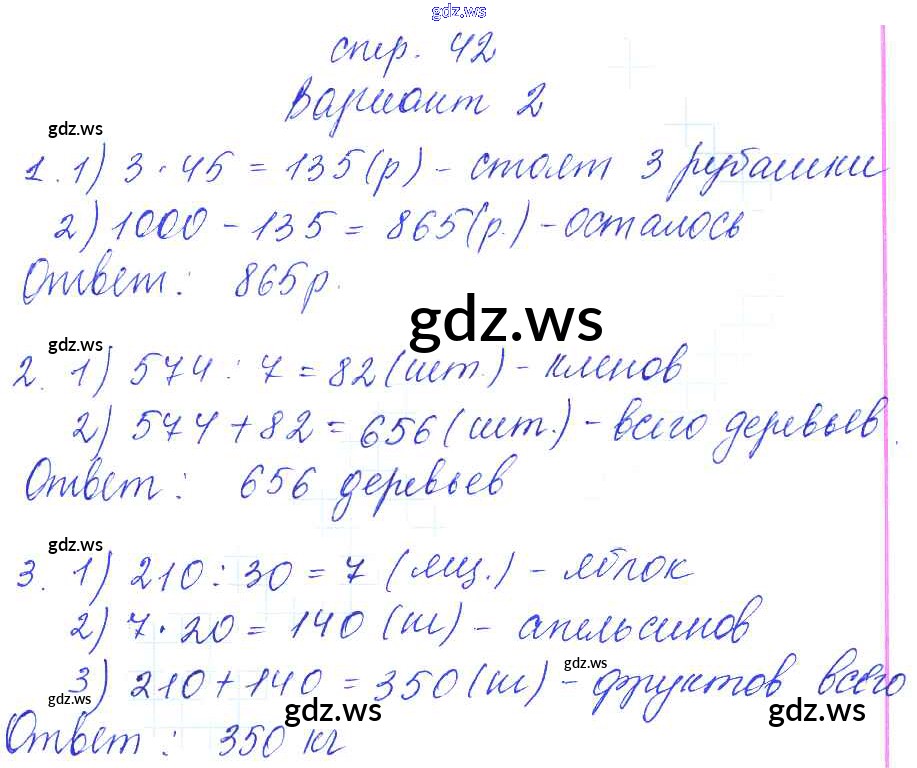 gdz.ws
стр. 42
Вариант 2
gdz.ws
1. 1) 3 · 45 = 135 (р) - стоят 3 рубашки
2) 1000 - 135 = 865 (р.) - осталось
Ответ: 865 р.
gdz.ws
gdz.ws
2. 1) 574 : 7 = 82 (шт.) - кленов
2) 574 + 82 = 656 (шт.) - всего деревьев.
Ответ: 656 деревьев
gdz.ws
3. 1) 210 : 30 = 7 (ящ.) - яблок
2) 7 · 20 = 140 (ш) - апельсинов
gdz.ws
3) 210 + 140 = 350 (ш) - фруктов всего
gdz.ws
gdz.ws gdz.ws
Ответ: 350 кг